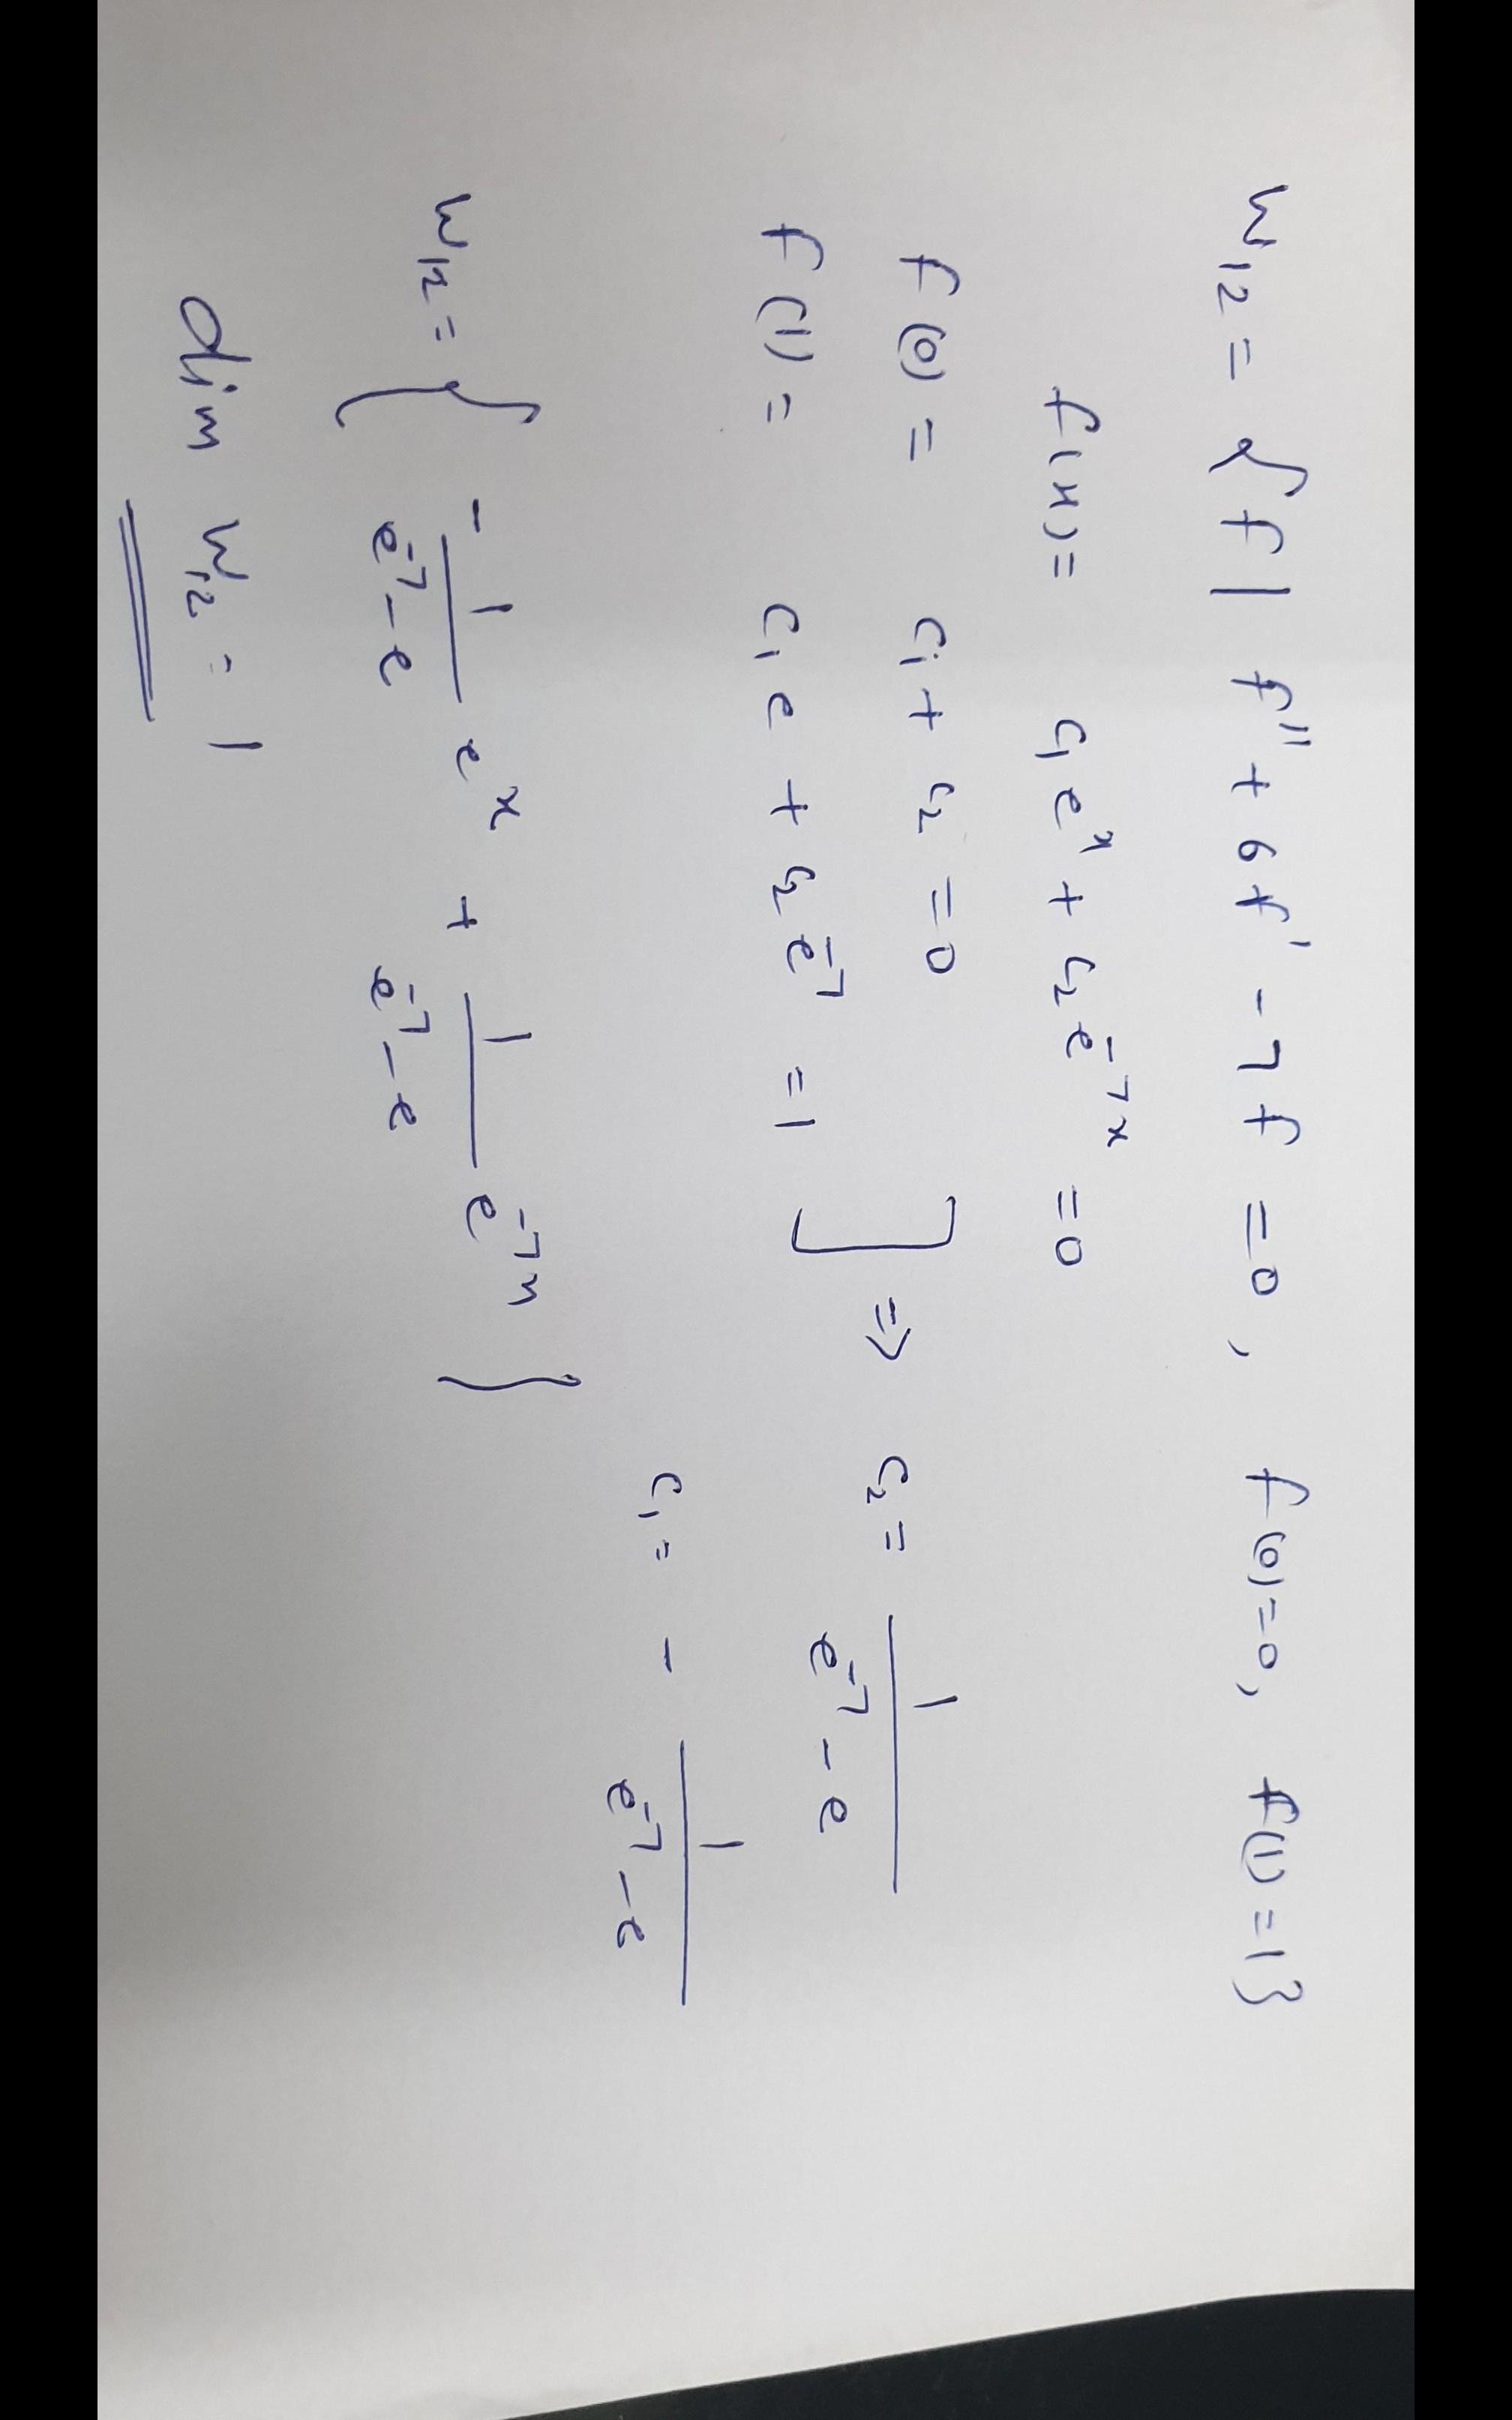 W₁₂ = { f | f'' + 6f' - 7f = 0, f(0) = 0, f(1) = 1}
f(x) = c₁eˣ + c₂e⁻⁷ˣ = 0
f(0) = c₁ + c₂ = 0
f(1) = c₁e + c₂e⁻⁷ = 1 ] ⇒ c₂ = 1/(e⁻⁷ - e)
c₁ = - 1/(e⁻⁷ - e)
W₁₂ = { - 1/(e⁻⁷ - e) eˣ + 1/(e⁻⁷ - e) e⁻⁷ˣ }
dim W₁₂ = 1